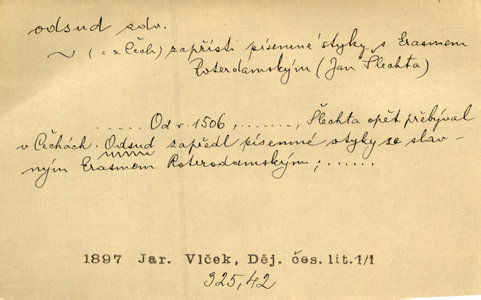 odsud adv.
~ (= z Čech) zapřísti písemné styky s Erasmem
Roterdamským (Jan Šlechta)
..... Od r. 1506, ......., Šlechta opět přebýval
v Čechách. Odsud zapředl písemné styky se slav-
ným Erasmem Roterodamským; ......
1897 Jar. Vlček, Děj. čes. lit. 1/1
325,42